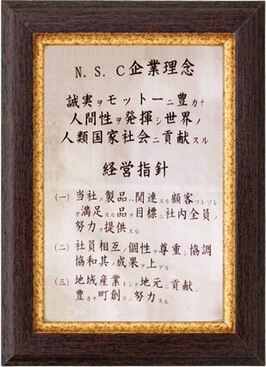 N.S.C企業理念
誠実ヲモットーニ豊カナ
人間性ヲ発揮シ世界ノ
人類国家社会ニ貢献スル
経営指針
(一) 当社ノ製品ハ関連スル顧客ソレゾレ
ガ満足スル品ヲ目標ニ社内全員ノ
努力ヲ提供スル
(二) 社員相互ノ個性ヲ尊重シ協調
協和其ノ成果ヲ上ゲル
(三) 地域産業トシテ地元ニ貢献シ
豊カナ町創リニ努力スル